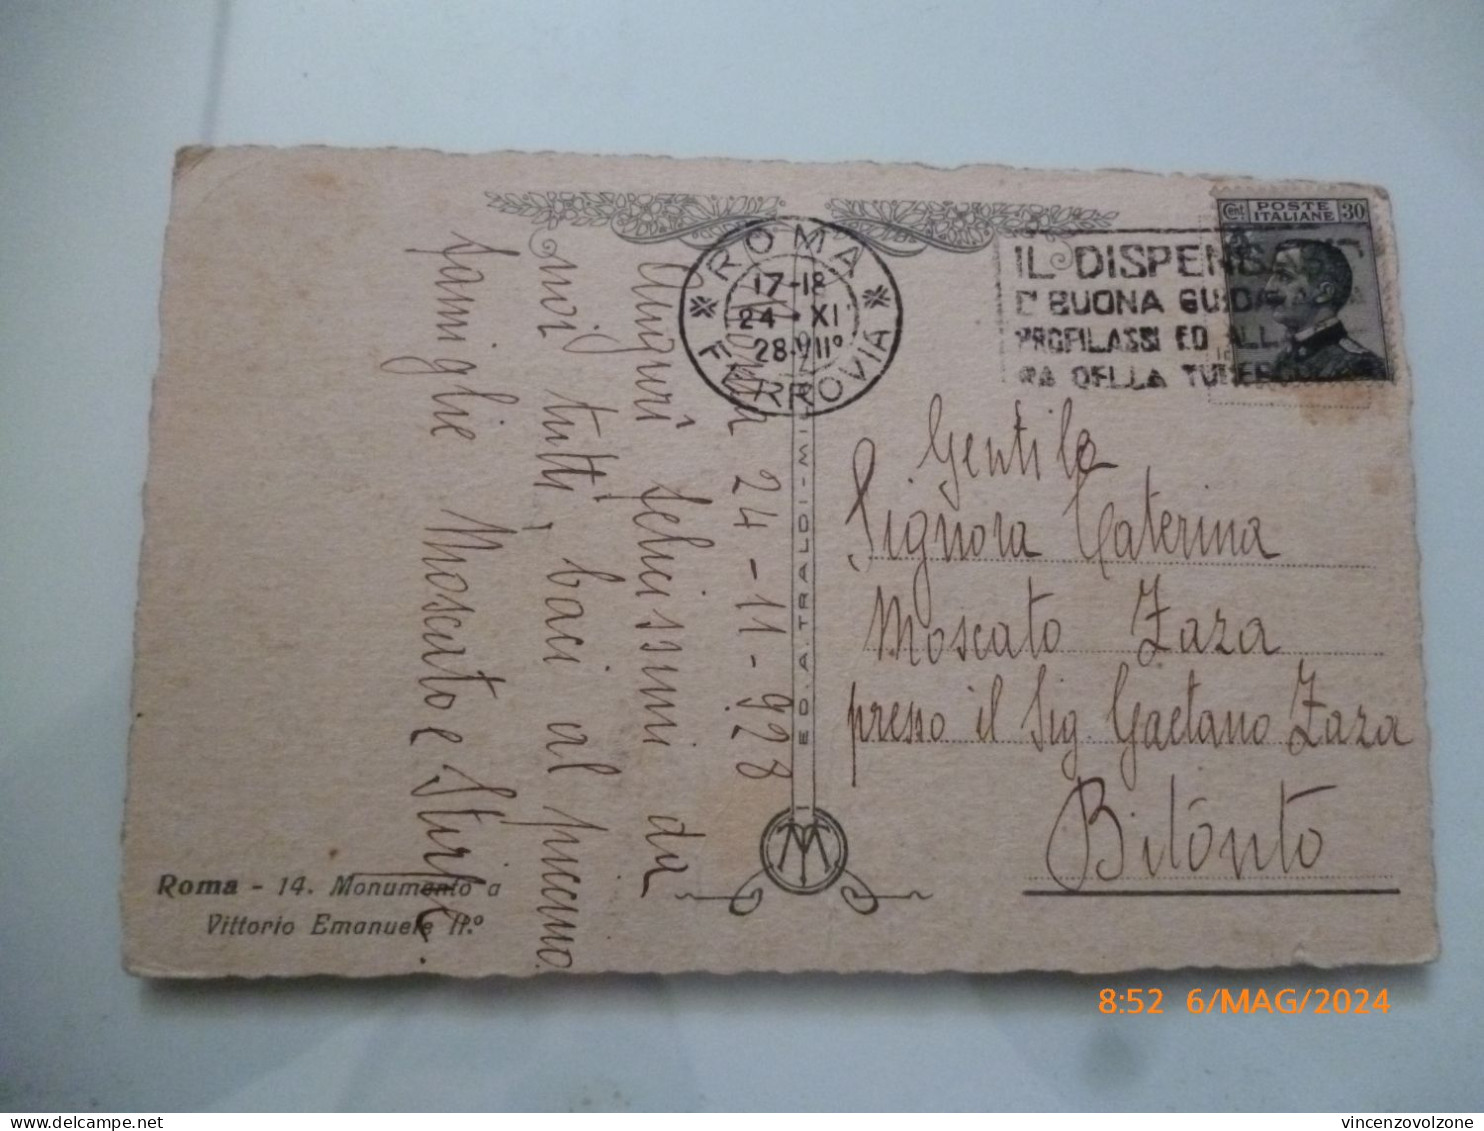 POSTE
ITALIANE
Cent 30
ROMA
17-18
24 · XI
28 · VII°
FERROVIA
IL DISPENSARIO
E' BUONA GUIDA ALLA
PROFILASSI ED ALLA
RA DELLA TUBERCOL
Roma 24-11-928
Auguri felicissimi da
noi tutti, baci al piccino
famiglie Moscato e
Gentile
Signora Caterina
Moscato Zaza
presso il Sig. Gaetano Zaza
Bitonto
ED. A. TRALDI - MI
Roma - 14. Monumento a
Vittorio Emanuele II.°
8:52 6/MAG/2024
vincenzovolzone